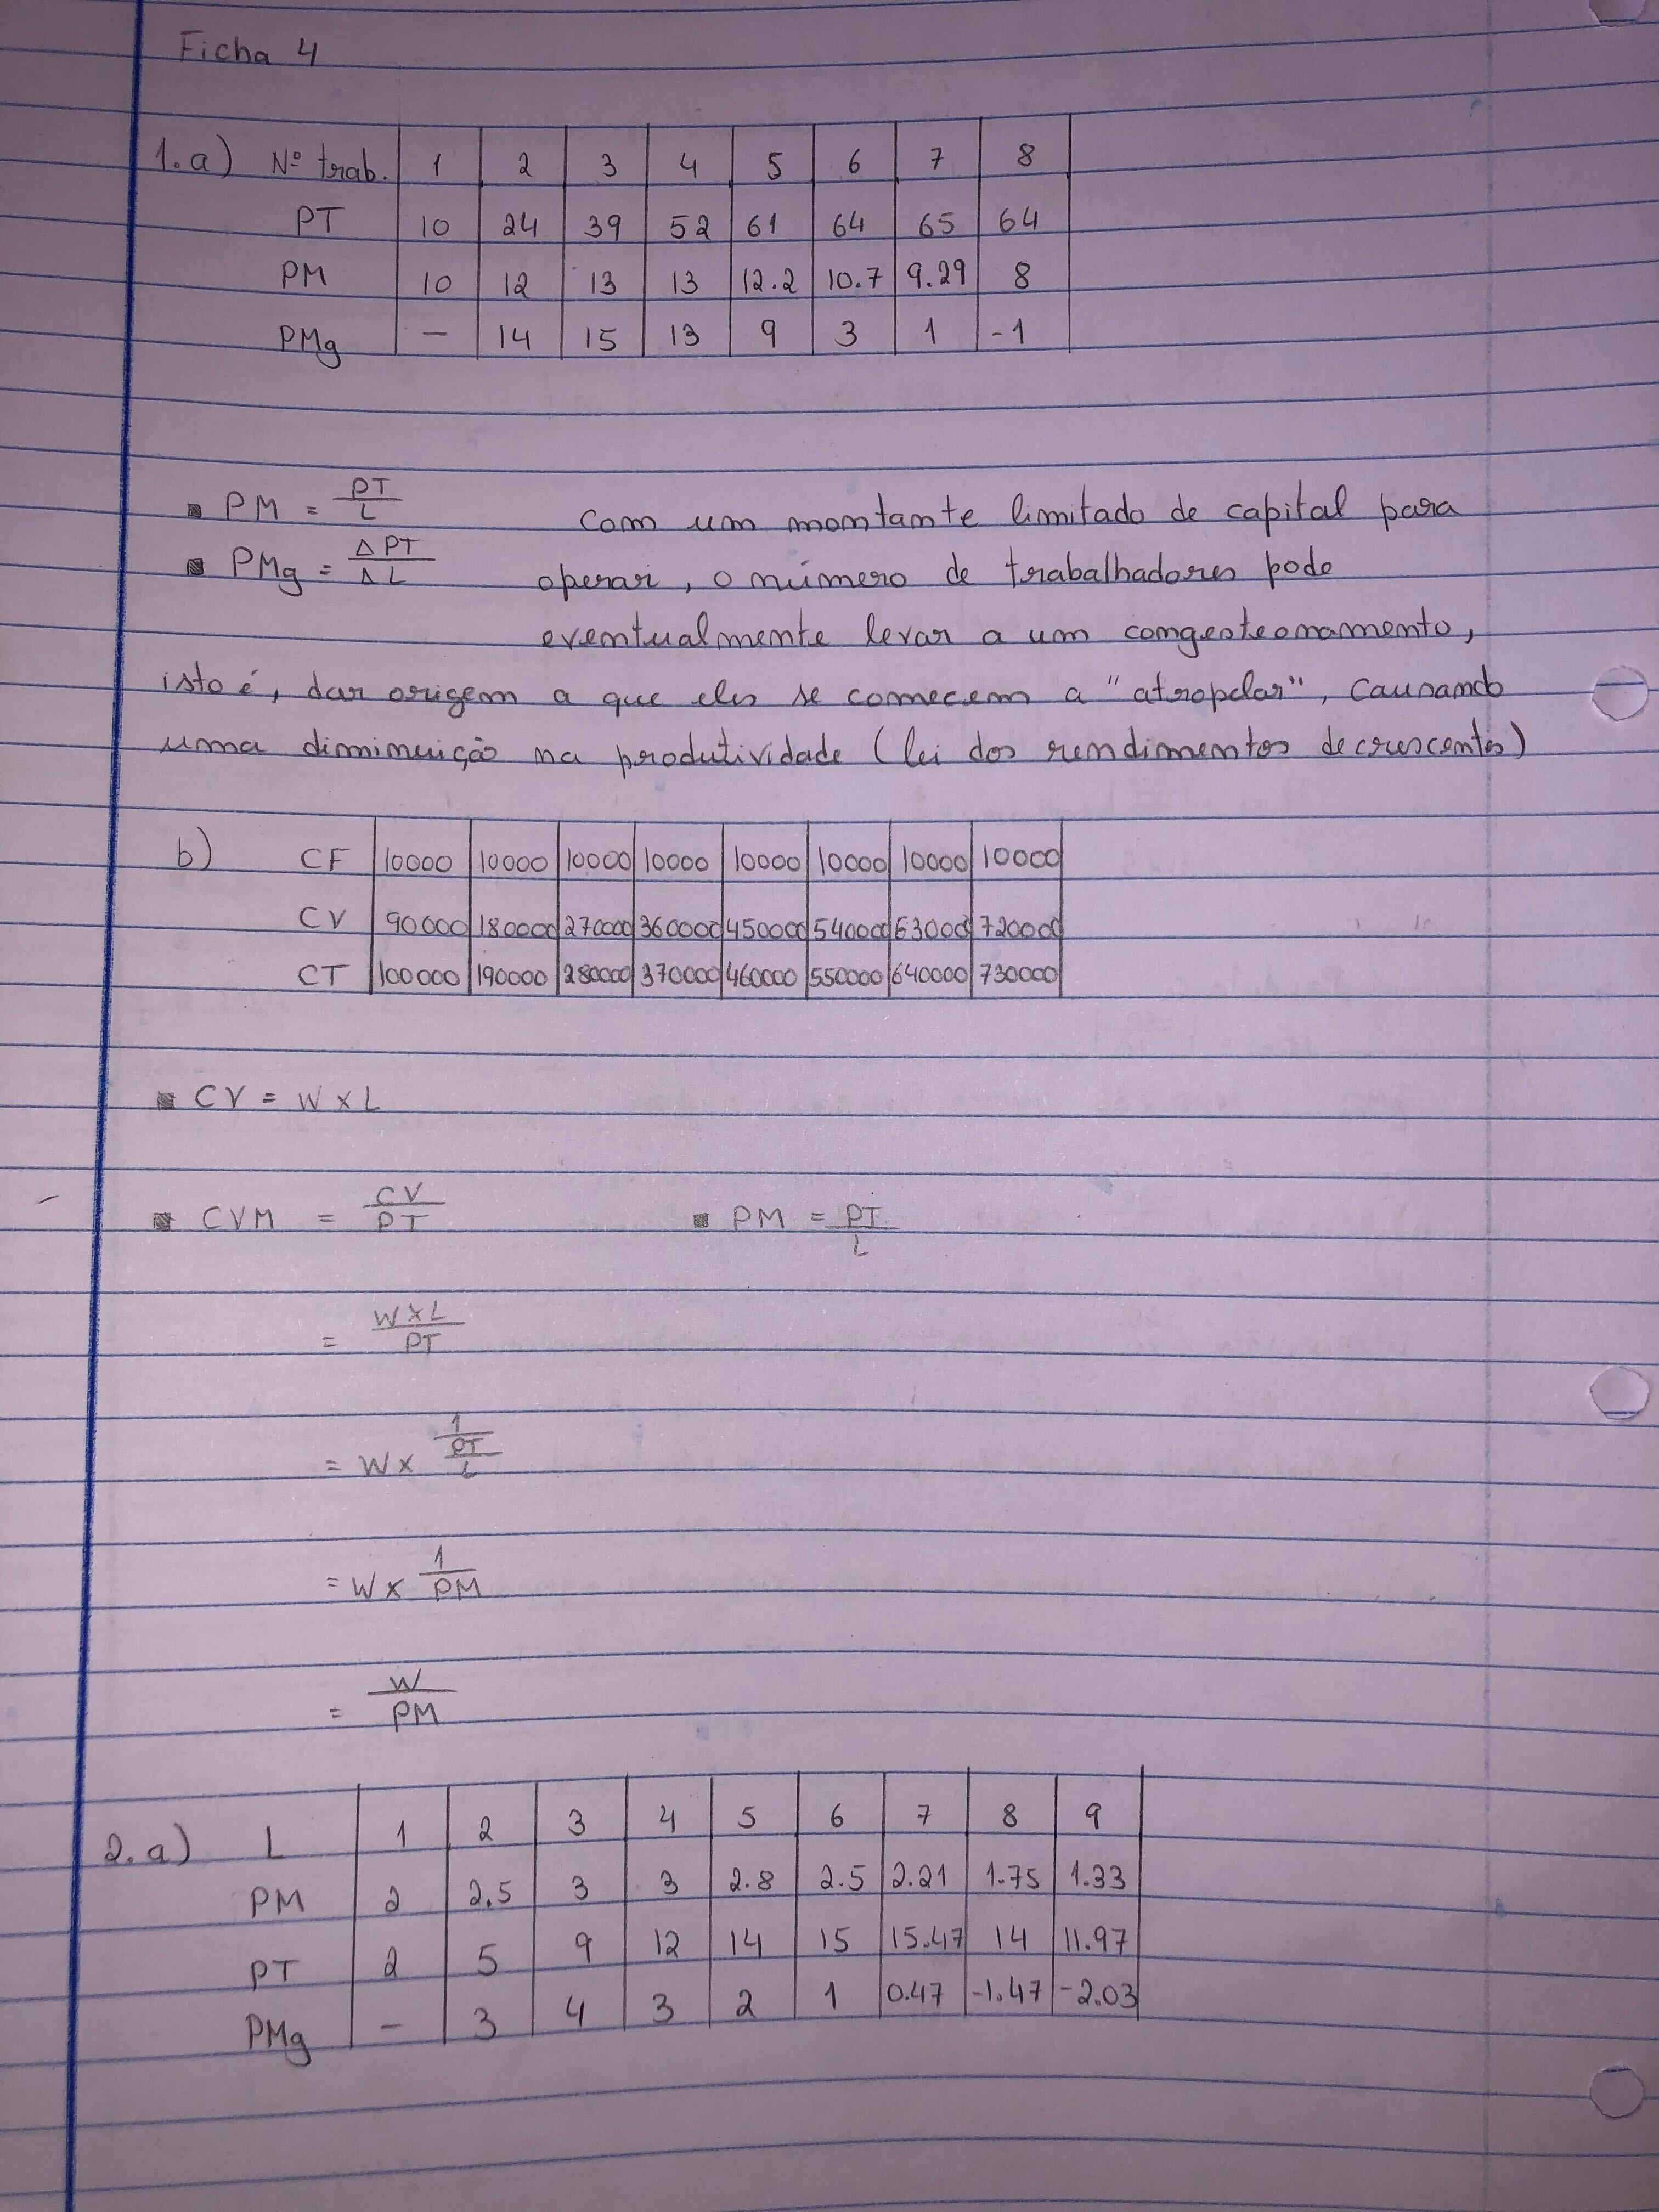 Ficha 4
1.a) Nº trab. 1 2 3 4 5 6 7 8
PT 10 24 39 52 61 64 65 64
PM 10 12 13 13 12.2 10.7 9.29 8
PMg - 14 15 13 9 3 1 -1
▪ PM = PT/L Com um montante limitado de capital para
▪ PMg = Δ PT/Δ L operar, o número de trabalhadores pode
eventualmente levar a um congesteonamento,
isto é, dar origem a que eles se comecem a "atropelar", causando
uma diminuição na produtividade (lei dos rendimentos decrescentes)
b) CF 10000 10000 10000 10000 10000 10000 10000 10000
CV 90000 180000 270000 360000 450000 540000 630000 720000
CT 100000 190000 280000 370000 460000 550000 640000 730000
▪ CV = W x L
▪ CVM = CV/PT ▪ PM = PT/L
= W x L/PT
= W x 1/(PT/L)
= W x 1/PM
= W/PM
2.a) L 1 2 3 4 5 6 7 8 9
PM 2 2.5 3 3 2.8 2.5 2.21 1.75 1.33
PT 2 5 9 12 14 15 15.47 14 11.97
PMg - 3 4 3 2 1 0.47 -1.47 -2.03